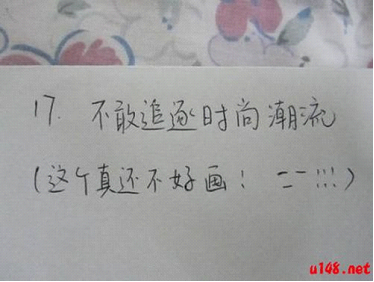 17. 不敢追逐时尚潮流
(这个真还不好画! 二一!!!)
u148.net